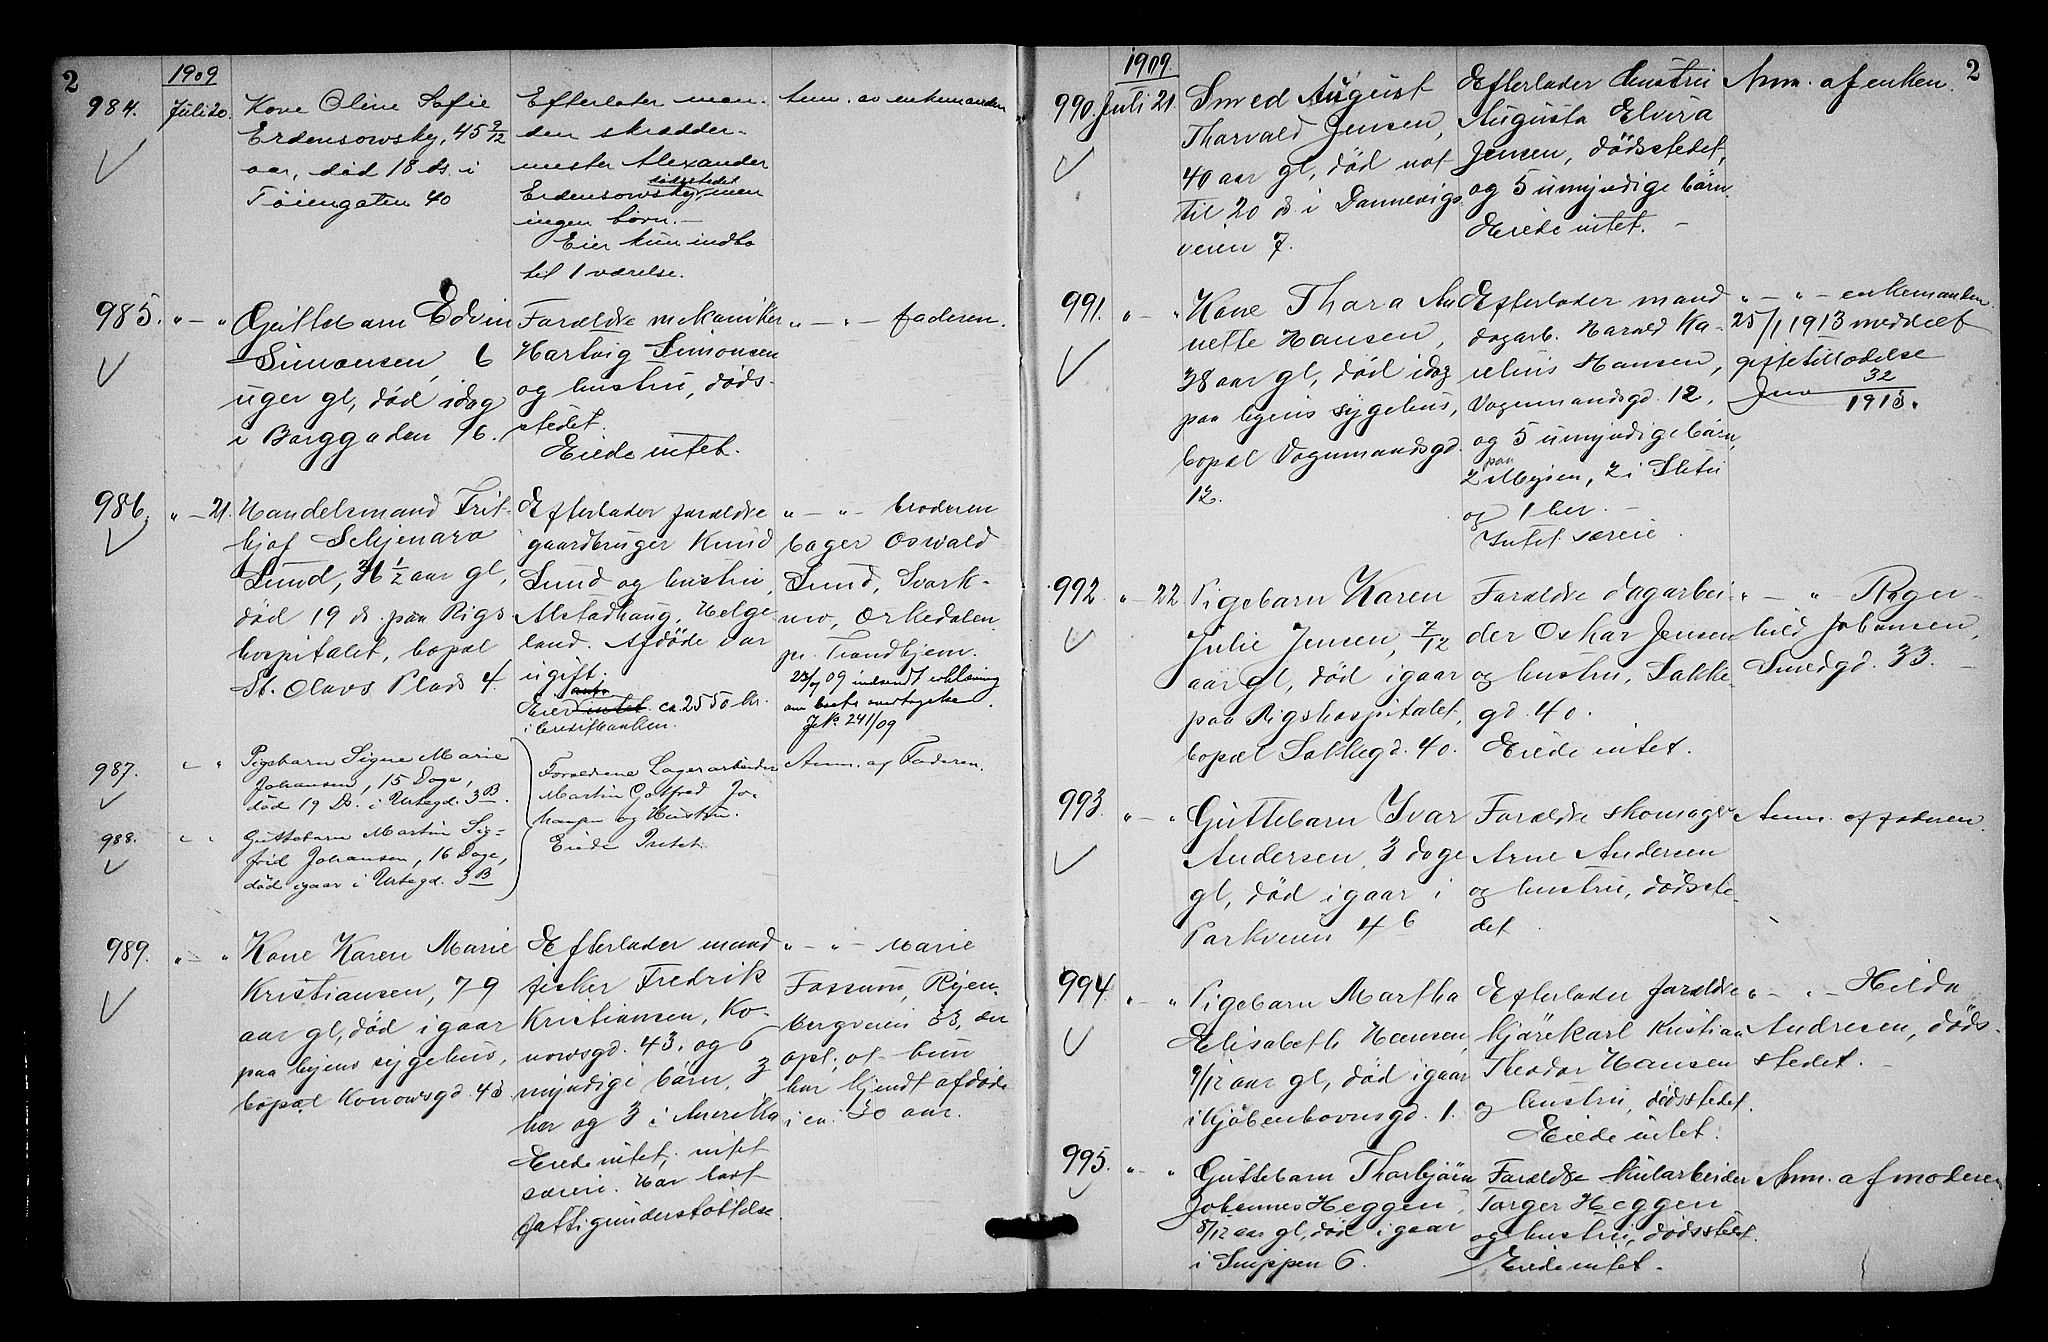 2
1909
984. Juli 20. Kone Oline Sofie
Erdensowsky, 45 9/12
aar, död 18 ds. i
Töiengaten 40
Efterlater man-
den skrædder-
mester Alexander
dödsstedet
Erdensowsky, men
ingen börn. —
Eier kun indbo
til 1 værelse.
Anm. av enkemanden
985. " — " Guttebarn Edvin
Simonsen, 6
uger gl, död idag
i Borggaden 16.
Forældre mekaniker
Hartvig Simonsen
og hustru, döds-
stedet.
Eiede intet.
" — " — faderen.
986. " — 21. Handelsmand Frit-
hjof Schjenarö
Sund, 31 1/2 aar gl,
död 19 ds. paa Rigs
hospitalet, bopæl
St. Olavs Plads 4.
Efterlader forældre
gaardbruger Knud
Sund og hustru,
Alstadhaug, Helge
land. Afdöde var
ugift.
Eier intet ca. 2550 kr.
i Creditbanken.
" — " broderen
bager Oswald
Sund, Svork-
mo, Orkedalen
pr. Trondhjem.
23/7 09 indsendt erklæring
om boets overtagelse.
J.No. 241/09
987. " " Pigebarn Signe Marie
Johansen, 15 Dage,
död 19 Ds. i Urtegd. 3B.
988. " " Guttebarn Martin Sig-
frid Johansen, 16 Dage,
död igaar i Urtegd. 3B
Forældrene Lagerarbeider
Martin Gotfred Jo-
hansen og Hustru.
Eiede Intet.
Anm. af Faderen.
989. " — " Kone Karen Marie
Kristiansen, 79
aar gl, död igaar
paa byens sygehus,
bopæl Konowsgd. 43
Efterlader mand
fisker Fredrik
Kristiansen, Ko-
nowsgd. 43, og 6
myndige börn, 3
her og 3 i Amerika
Eiede intet, intet
særeie. Har havt
fattigunderstöttelse.
" — " — Marie
Fossum, Ryen-
bergveien 33, der
opl. at hun
har kjendt afdöde
i ca. 30 aar.
2
1909.
990. Juli 21. Smed August
Thorvald Jensen,
40 aar gl, död nat
til 20 ds. i Dannevigs
veien 7.
Efterlader hustru
Augusta Elvira
Jensen, dödsstedet,
og 5 umyndige börn.
Eiede intet. —
Anm. af enken.
991. " — " Kone Thora An
nette Hansen,
38 aar gl, död idag
paa byens sygehus,
bopæl Vognmandsgd.
12.
Efterlader mand
dagarb. Harald Ka-
relius Hansen,
Vognmandsgd. 12,
og 5 umyndige börn,
paa
2 Mysen, 2 i Sletu
og 1 her. —
Intet særeie.
" — " — enkemanden
25/1 1913 meddelt
giftetilladelse
Jno 32
1913.
992. " — 22 Pigebarn Karen
Julie Jensen, 7/12
aar gl, död igaar
paa Rigshospitalet,
bopæl Lakkegd. 40.
Forældre dagarbei-
der Oskar Jensen
og hustru, Lakke-
gd. 40.
Eiede intet.
" — " Ragn-
hild Johansen,
Smedgd. 33. —
993. " — " Guttebarn Ivar
Andersen, 3 dage
gl, död igaar i
Parkveien 46
Forældre skomager
Arne Andersen
og hustru, dödsste-
det
Anm. af faderen.
994. " — " Pigebarn Martha
Elisabeth Hansen,
9/12 aar gl, död igaar
i Kjöbenhavnsgd. 1.
Efterlader forældre
kjörekarl Kristian
Theodor Hansen
og hustru, dödsstedet.
Eiede intet.
" — " — Hilda
Andresen, döds-
stedet. —
995. " — " Guttebarn Thorbjörn
Johannes Heggen,
8/12 aar gl, död igaar
i Snippen 6.
Forældre kularbeider
Torger Heggen
og hustru, dödsstedet.
Eiede intet.
Anm. af moderen